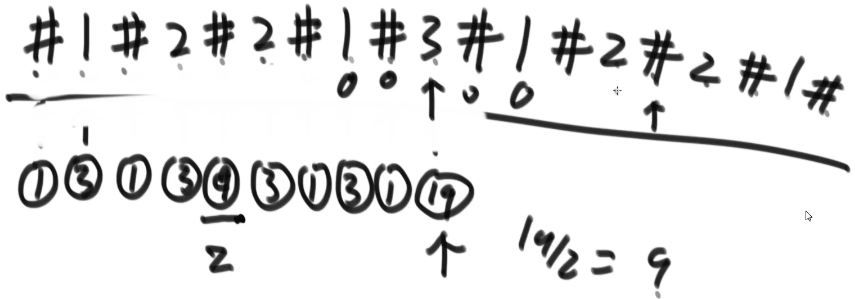 # 1 # 2 # 2 # 1 # 3 # 1 # 2 # 2 # 1 #
0 0 ↑ 0 0 ↑
1
① ③ ① ③ ⑨ ③ ① ③ ① ⑲
2 ↑ 19/2 = 9